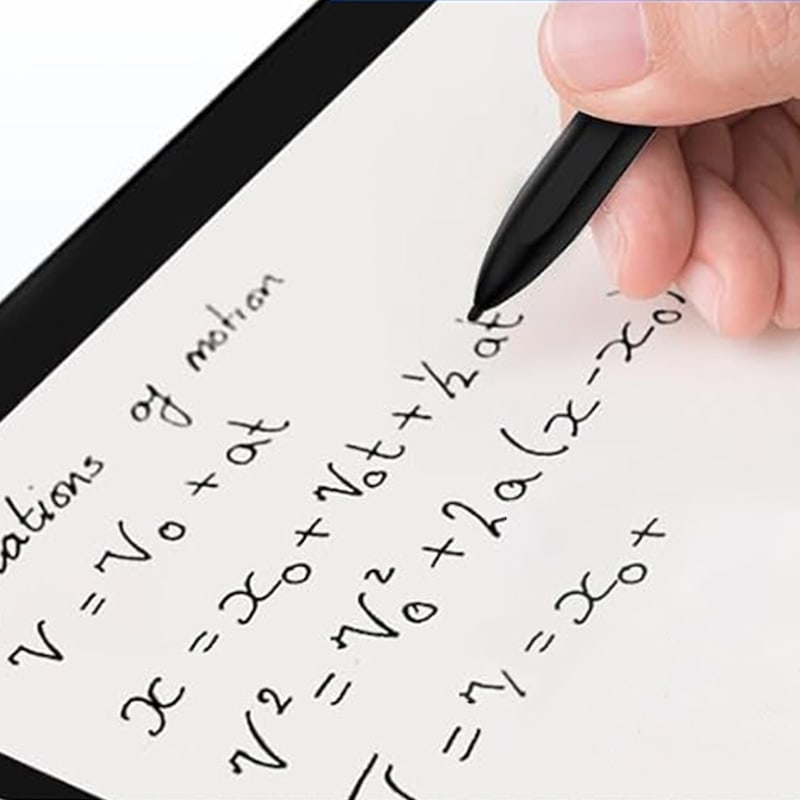 ations of motion
v = v₀ + at
x = x₀ + v₀t + ½ at
v² = v₀² + 2a(x - x₀)
= η = x₀ +